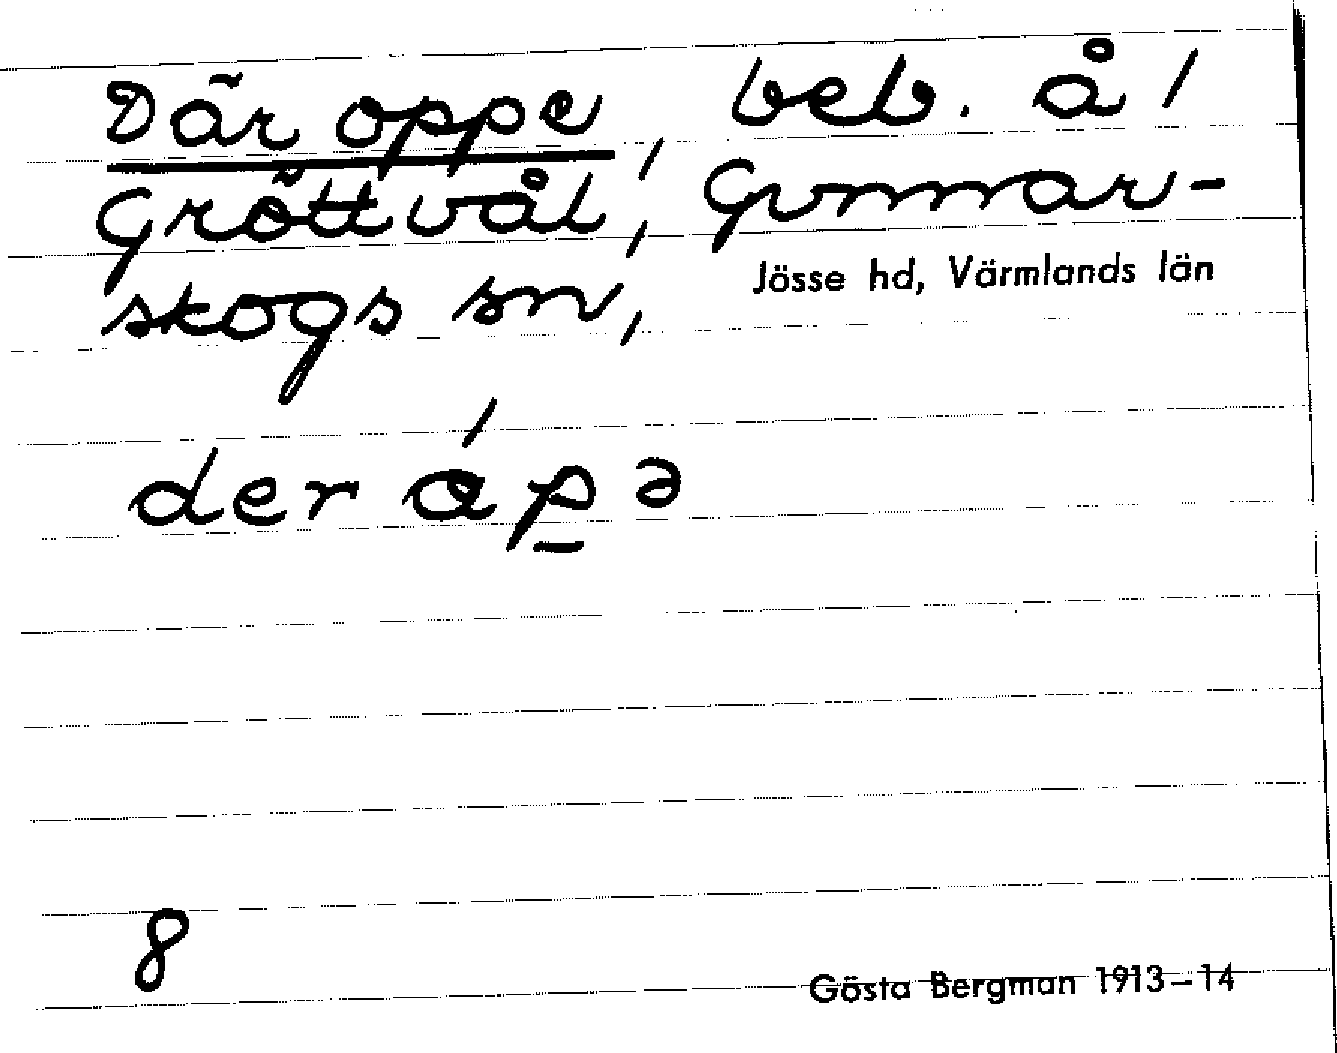 Där oppe, beb. å /
Gröttvål, Gunnar-
skogs sn,
Jösse hd, Värmlands län
der ápə
8
Gösta Bergman 1913–14